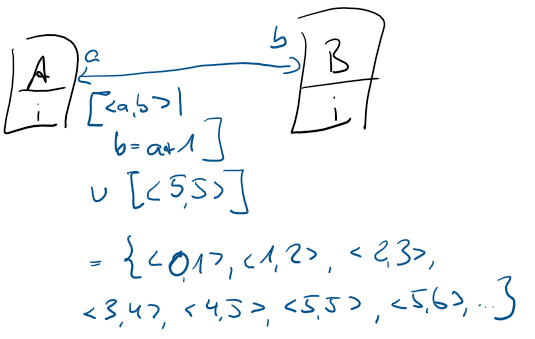 a b
A B
i i
[<a,b>|
b=a+1]
∪ [<5,5>]
= {<0,1>, <1,2>, <2,3>,
<3,4>, <4,5>, <5,5>, <5,6>, ...}